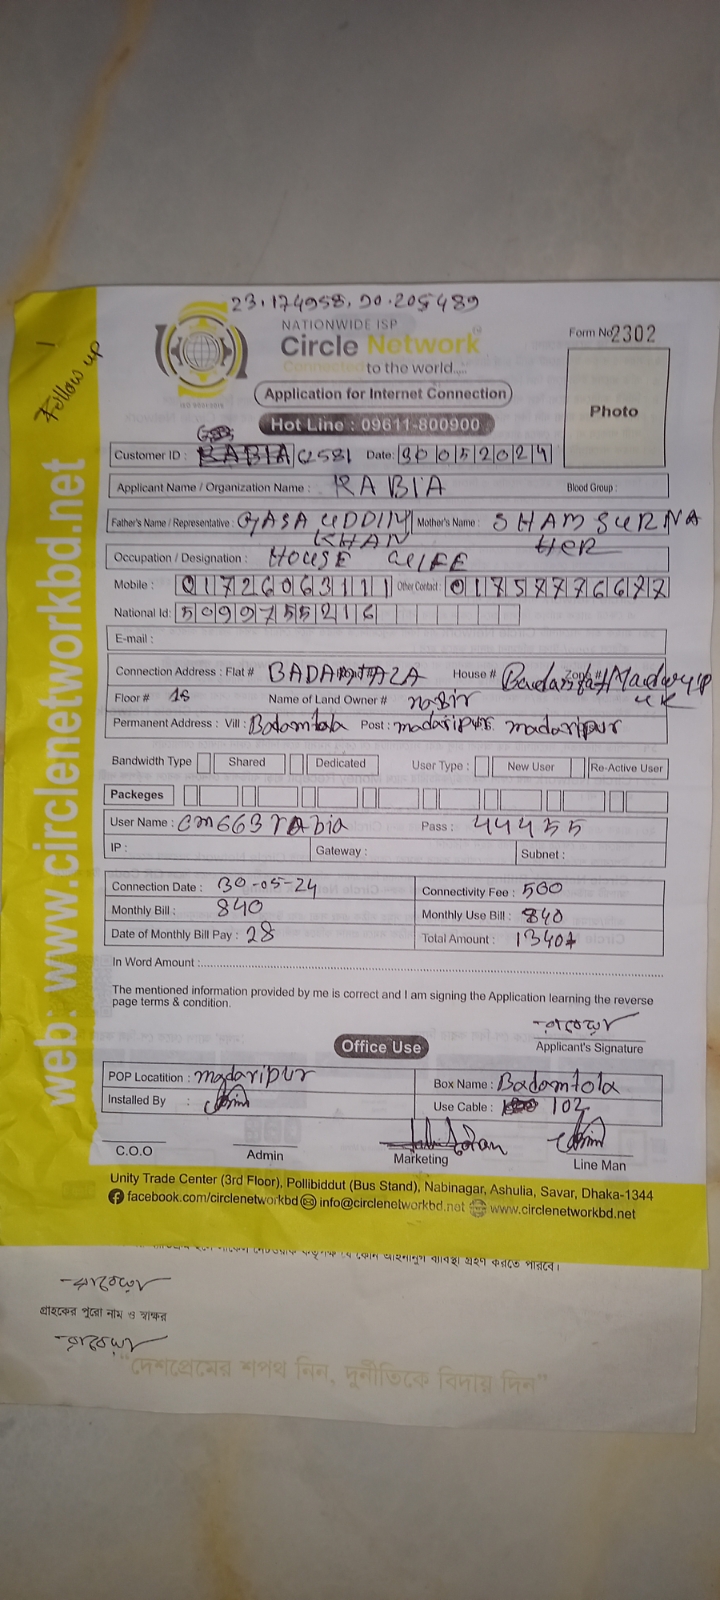 23.174958, 90.205489
Follow up
NATIONWIDE ISP
Circle Network
Connected to the world.....
Form No 2302
Application for Internet Connection
Photo
Hot Line : 09611-800900
Customer ID : 2581 Date: 30 05 2024
Applicant Name / Organization Name : RABIA Blood Group :
Father's Name / Representative : GYASA UDDIN KHAN Mother's Name : SHAMSURNA HER
Occupation / Designation : HOUSE WIFE
Mobile : 01726063111 Other Contact : 01757776677
National Id: 5099755216
E-mail :
Connection Address : Flat # House # Madaripur
Floor # 1s Name of Land Owner # nasir
Permanent Address : Vill : Badamtola Post : madaripur madaripur
Bandwidth Type Shared Dedicated User Type : New User Re-Active User
Packeges
User Name : cm663rabia Pass : 44455
IP : Gateway : Subnet :
Connection Date : 30-05-24 Connectivity Fee : 500
Monthly Bill : 840 Monthly Use Bill : 840
Date of Monthly Bill Pay : 28 Total Amount : 1340/
In Word Amount :
The mentioned information provided by me is correct and I am signing the Application learning the reverse
page terms & condition.
রাবেয়া
Applicant's Signature
Office Use
POP Locatition : madaripur Box Name : Badamtola
Installed By : Use Cable : 102
C.O.O Admin Marketing Line Man
Unity Trade Center (3rd Floor), Pollibiddut (Bus Stand), Nabinagar, Ashulia, Savar, Dhaka-1344
facebook.com/circlenetworkbd info@circlenetworkbd.net www.circlenetworkbd.net
web: www.circlenetworkbd.net
যে কোন আইনানুগ ব্যবস্থা গ্রহণ করতে পারবে।
রাবেয়া
গ্রাহকের পুরো নাম ও স্বাক্ষর
রাবেয়া
"দেশপ্রেমের শপথ নিন, দুর্নীতিকে বিদায় দিন"